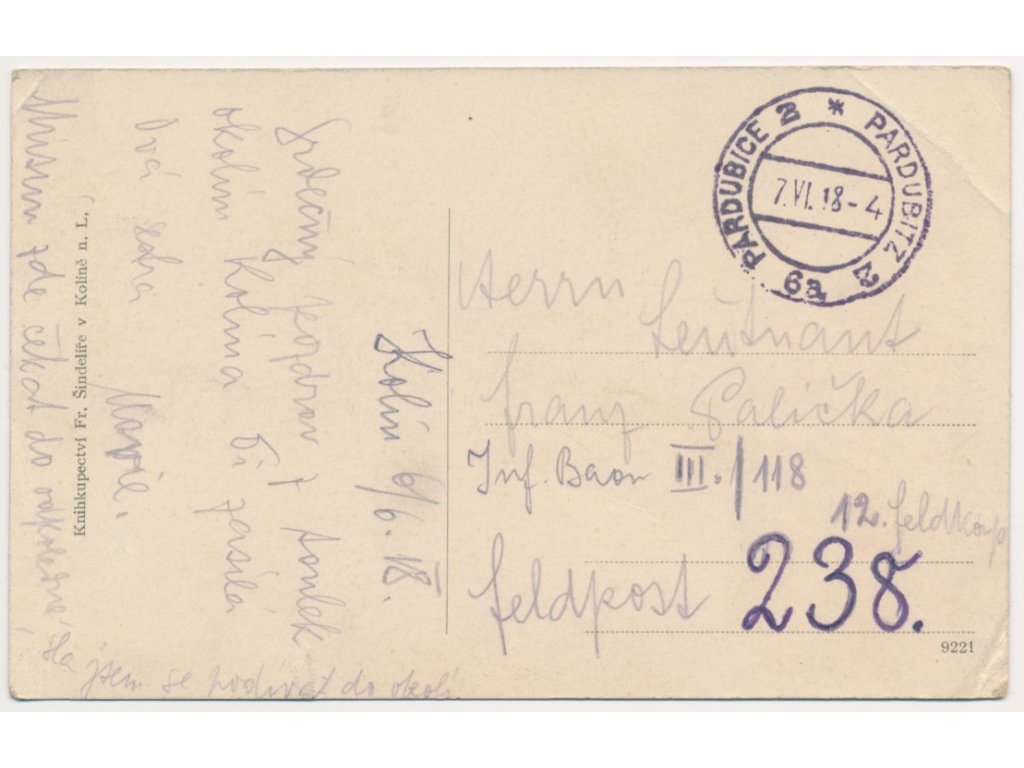 Kolín 6/6. 18.
Srdečný pozdrav z toulek
okolím Kolína Ti zasílá
Tvá
Marie.
Musím zde čekat do odpoledne,
jsem se podívat do okolí
Knihkupectví Fr. Šindelíře v Kolíně n. L.
* PARDUBITZ 2
6a PARDUBICE 2
7.VI.18-4
Herrn
Leutnant
Franz Palička
Inf. Baon III./118
12. Feldkomp
Feldpost 238.
9221